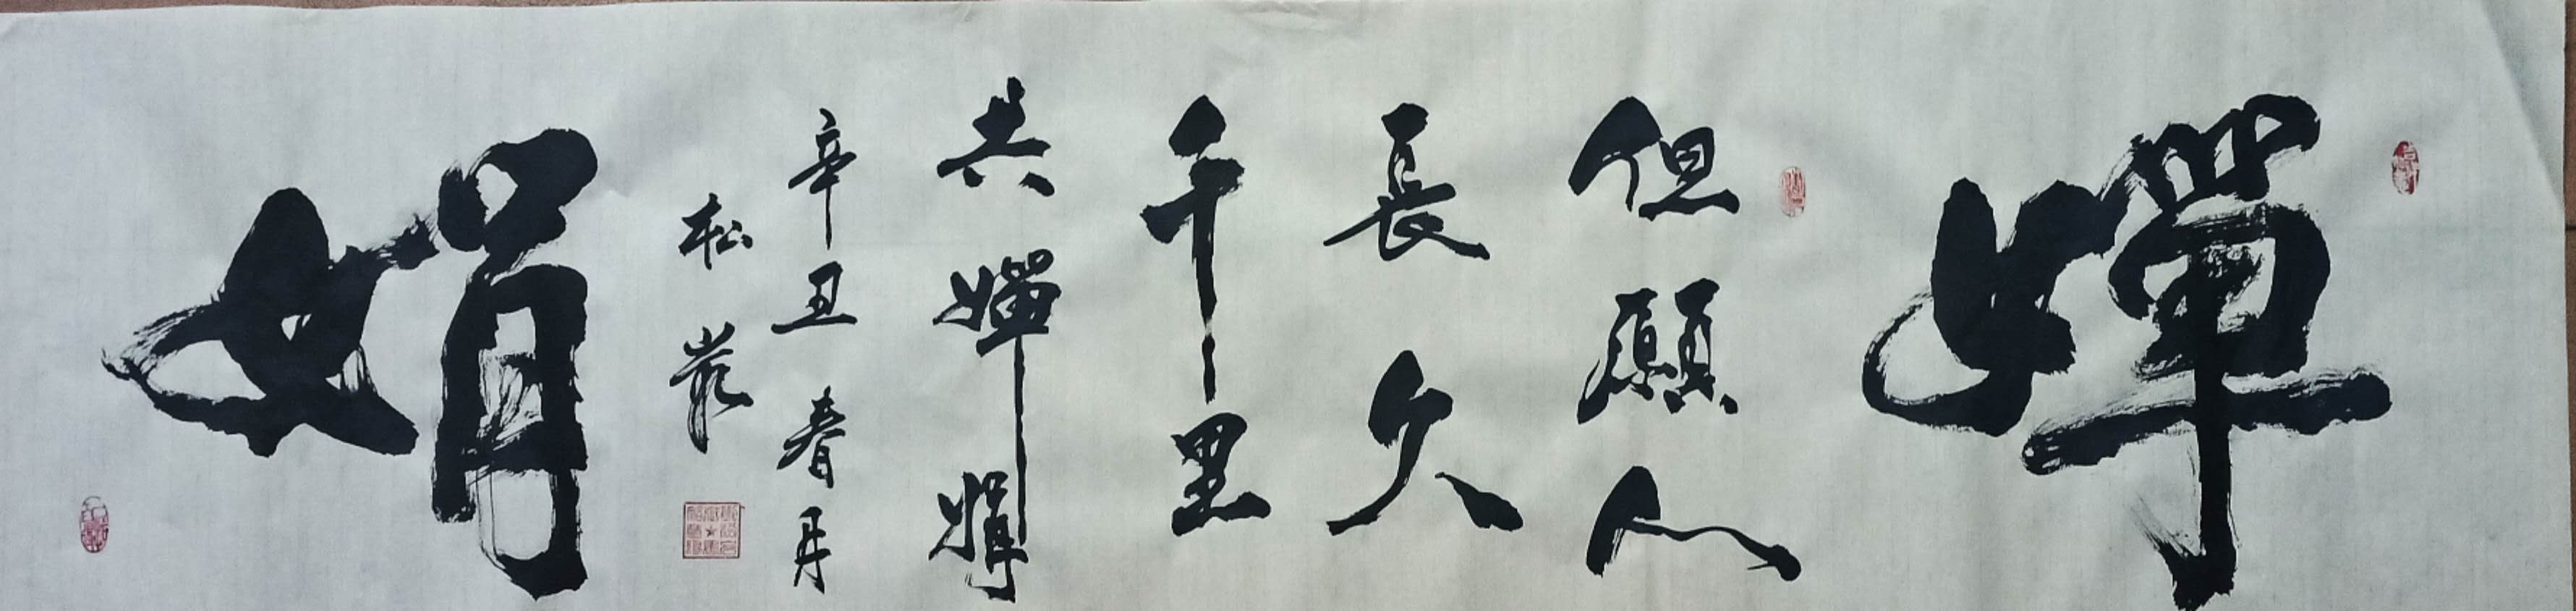 嬋
但願人
長久
千里
共嬋娟
辛丑春月
松巖
娟